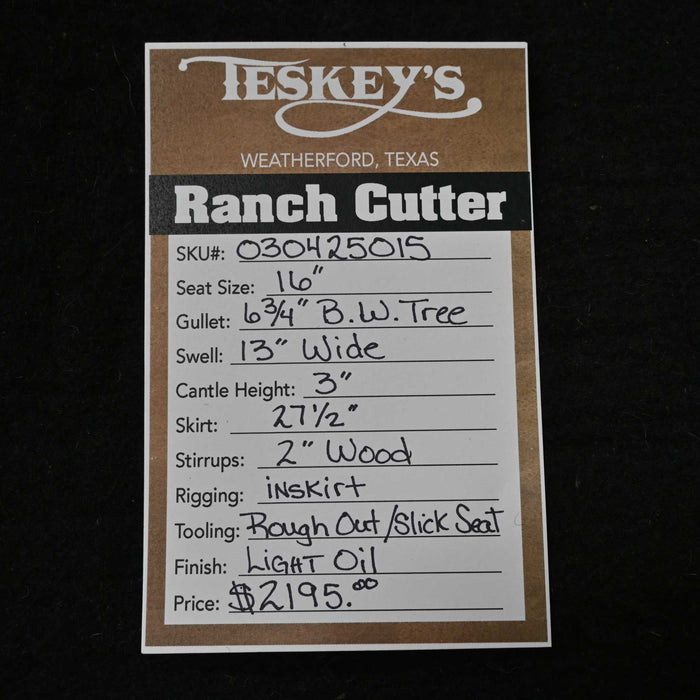 TESKEY'S
WEATHERFORD, TEXAS
Ranch Cutter
SKU#: 030425015
Seat Size: 16"
Gullet: 6 3/4" B.W. Tree
Swell: 13" Wide
Cantle Height: 3"
Skirt: 27 1/2"
Stirrups: 2" Wood
Rigging: inskirt
Tooling: Rough Out/Slick Seat
Finish: LIGHT Oil
Price: $2195.00